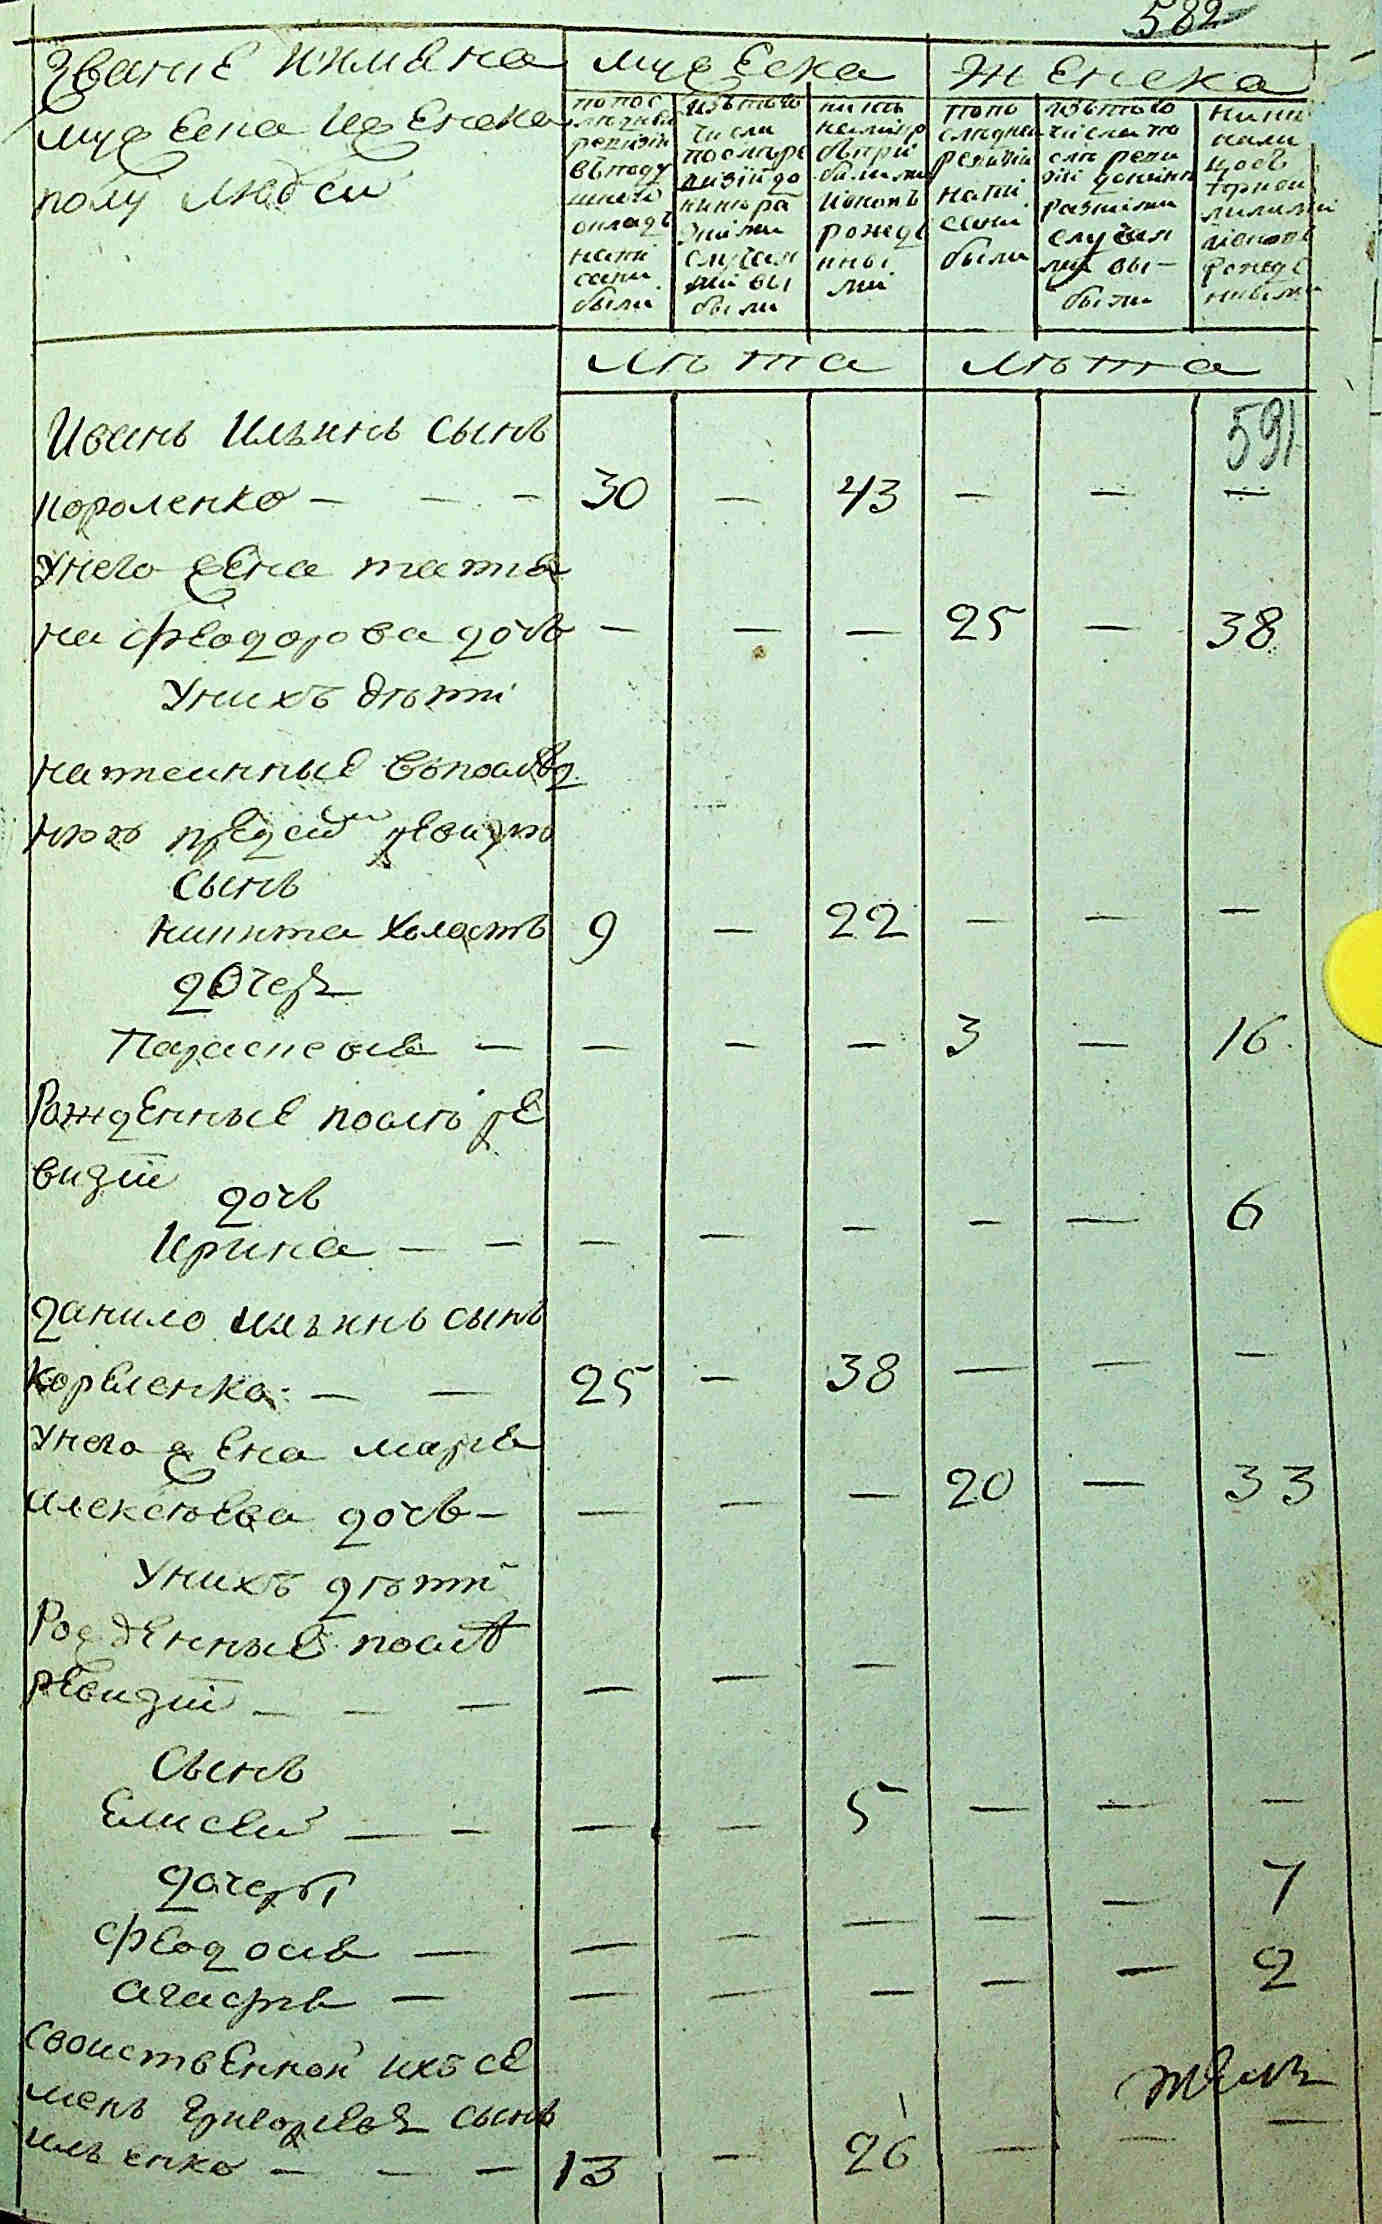 582
Звание имена
мужеска Иженска
полу людей
мужеска
женска
попос
ледней
ревизiи
вподу
шной
окладъ
напи
саны
были
изътого
числа
послѣре
визiи до
ними ра
зными
случая
ми вы
были
нинѣ
налицо
сприбылыми
ивновь
рожде
нны
ми
попо
следней
ревизiи
напи
саны
были
изътого
числапо
слѣ реви
зiи донинѣ
разными
случая
ми вы-
были
нынѣ
нали
цо съ
ивновь
рожде
нными
лѣта
лѣта
Иванъ Ильинъ сынъ
591
короленко - - - 30 - 43 - - -
Унего жена татья
на феодорова дочь - - - 25 - 38
Унихъ дѣти
написанные впослед
нюю предсiю ревизiю
сынъ
никита холостъ 9 - 22 - - -
дочеръ
Параскевия - - - - 3 - 16
Рожденные послѣ ре
визiи
дочь
Ирина - - - - - - - 6
данило ильинъ сынъ
короленко - - 25 - 38 - - -
Унего жена марья
алексѣева дочь - - - - 20 - 33
Унихъ дѣти
Рожденные послѣ
ревизiи - - - - - -
Сынъ
Елисей - - - - 5 - - -
дочеры
феодосия - - - - - - 7
агафия - - - - - - 2
свойственной ихъ се
менъ григорьевъ сынъ
ильенко - - - 13 - 26 - - -